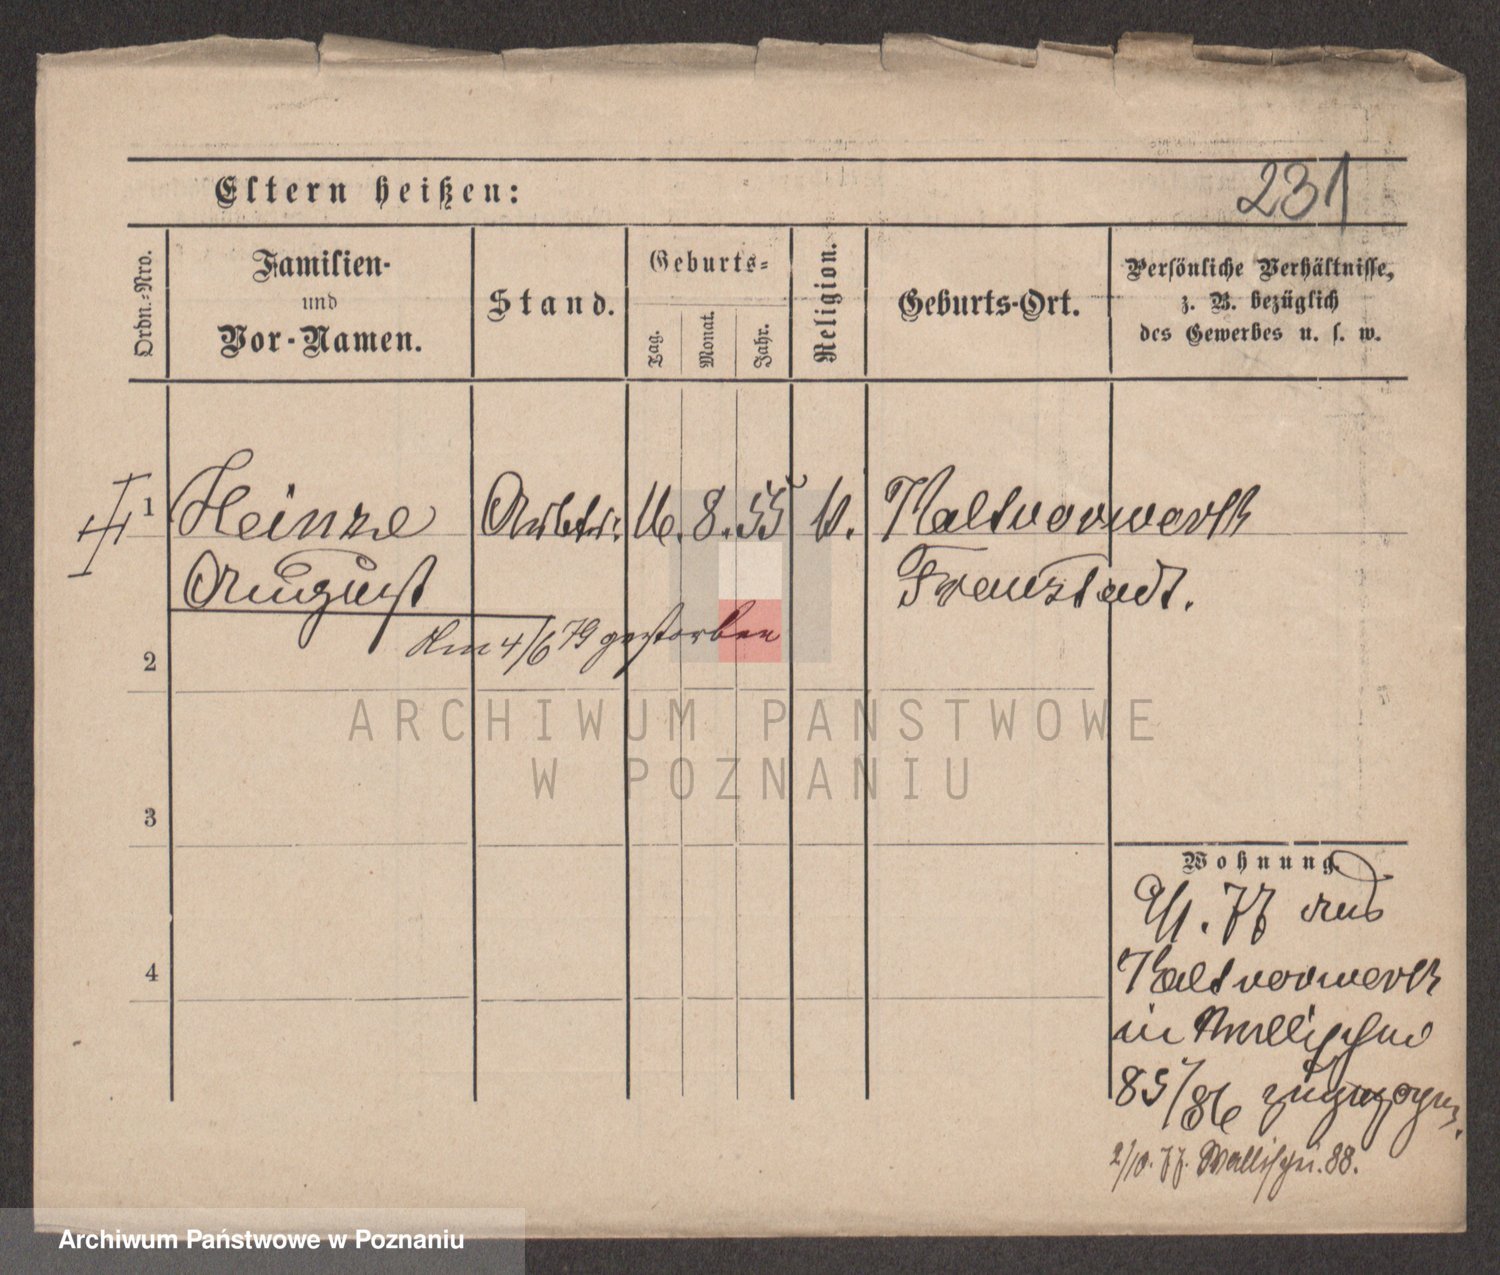 Eltern heißen:
231
Ordn.-Nro.
Familien-
und
Vor-Namen.
Stand.
Geburts-
Tag.
Monat.
Jahr.
Religion.
Geburts-Ort.
Persönliche Verhältnisse,
z. B. bezüglich
des Gewerbes u. s. w.
1
Heinze
Arbtr. 16. 8. 55 Kaltvorwerk
August
Fraustadt.
Am 4/6 79 gestorben
2
ARCHIWUM PAŃSTWOWE
W POZNANIU
3
Wohnung.
/1. 77 aus
Kaltvorwerk
in Wallischei
85/86 zugezogen.
2/10. 77. Wallischei. 88.
4
Archiwum Państwowe w Poznaniu